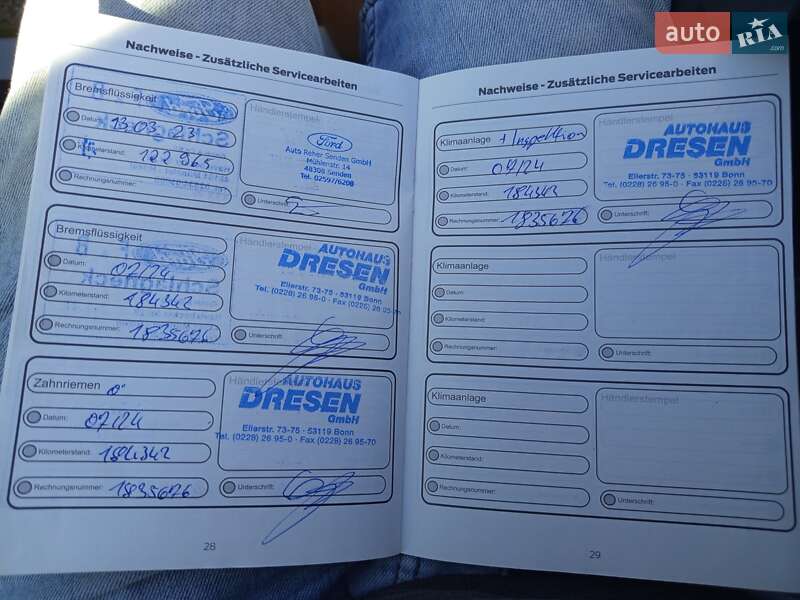 auto RIA.com
Nachweise - Zusätzliche Servicearbeiten
Bremsflüssigkeit
Datum: 13.03.23
Kilometerstand: 122 965
Rechnungsnummer:
Händlerstempel
Ford
Auto Reher Senden GmbH
Mühlenstr. 14
48308 Senden
Tel. 02597/6208
Unterschrift:
Bremsflüssigkeit
Datum: 07/24
Kilometerstand: 184342
Rechnungsnummer: 1835676
Händlerstempel
AUTOHAUS
DRESEN
GmbH
Ellerstr. 73-75 · 53119 Bonn
Tel. (0228) 26 95-0 · Fax (0228) 26 95-70
Unterschrift:
Zahnriemen
Datum: 07/24
Kilometerstand: 184342
Rechnungsnummer: 1835676
Händlerstempel
AUTOHAUS
DRESEN
GmbH
Ellerstr. 73-75 · 53119 Bonn
Tel. (0228) 26 95-0 · Fax (0228) 26 95-70
Unterschrift:
28
Nachweise - Zusätzliche Servicearbeiten
Klimaanlage + Inspektion
Datum: 07/24
Kilometerstand: 184343
Rechnungsnummer: 1835676
Händlerstempel
AUTOHAUS
DRESEN
GmbH
Ellerstr. 73-75 · 53119 Bonn
Tel. (0228) 26 95-0 · Fax (0228) 26 95-70
Unterschrift:
Klimaanlage
Datum:
Kilometerstand:
Rechnungsnummer:
Händlerstempel
Unterschrift:
Klimaanlage
Datum:
Kilometerstand:
Rechnungsnummer:
Händlerstempel
Unterschrift:
29